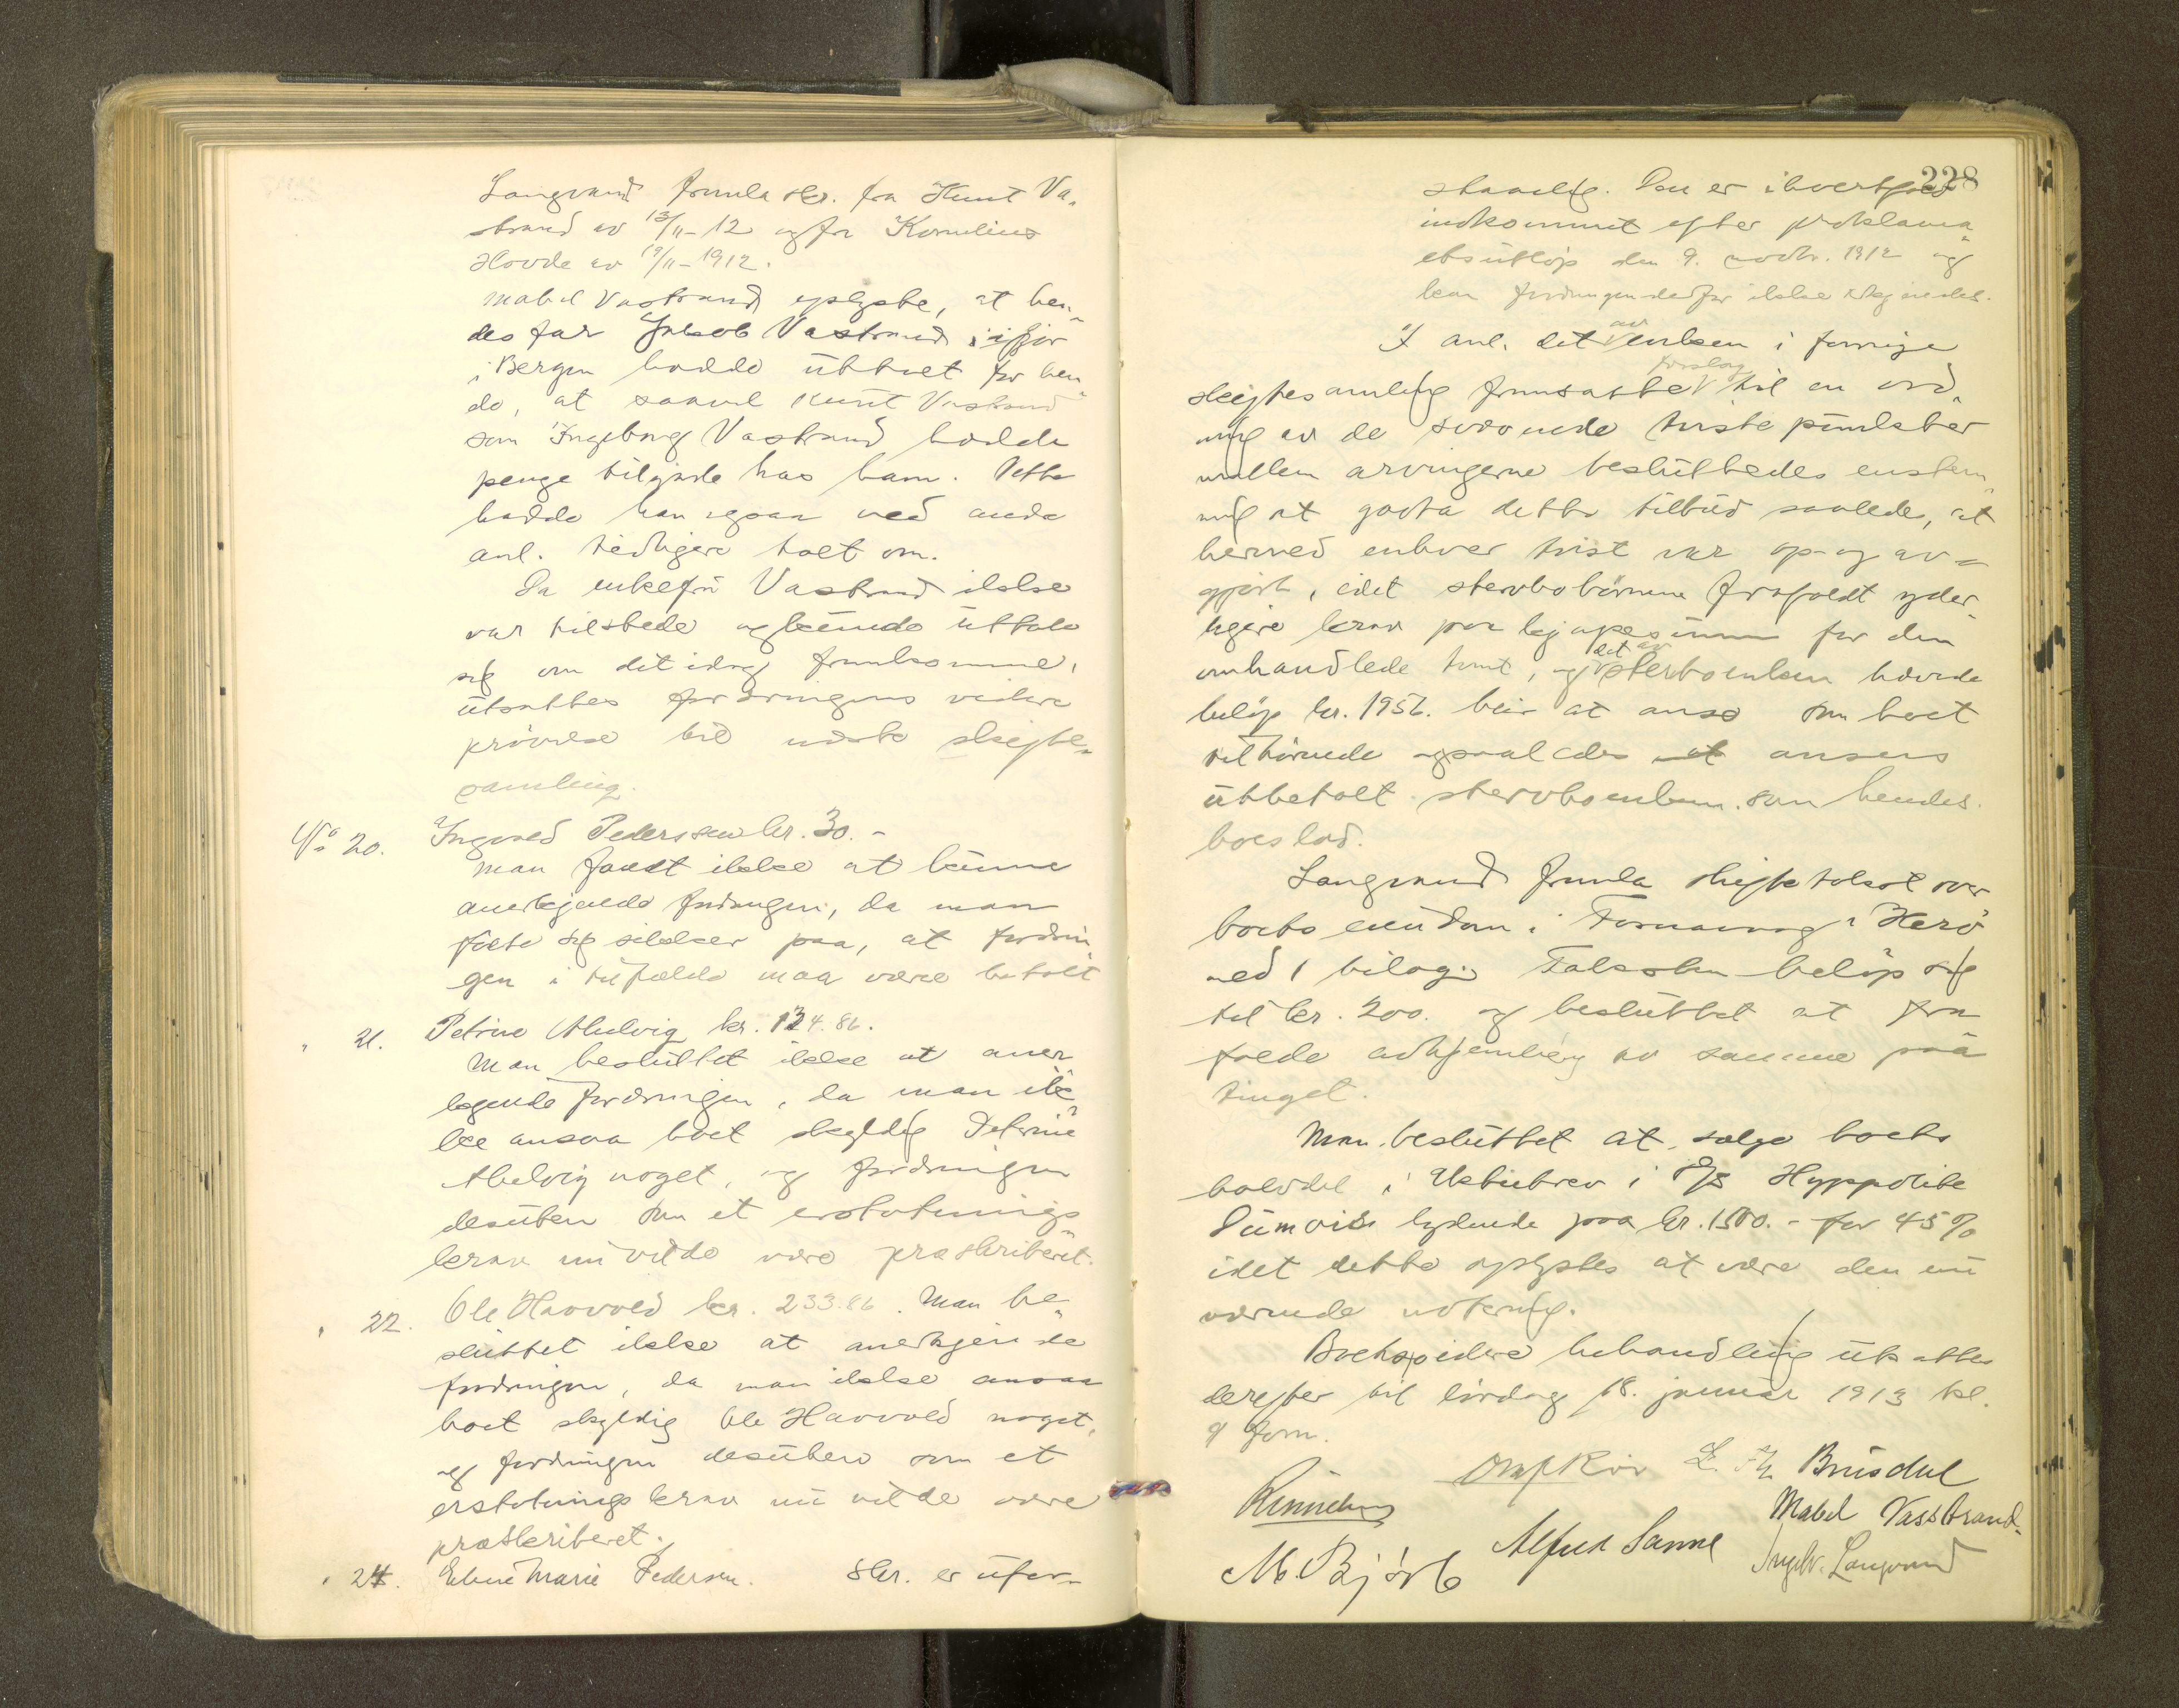 Langvand fremla skr. fra Knut Va„
strand av 13/11-12 og fra Kornelius
Hovde av 19/11-1912.
Mabel Vastrand oplyste, at hen„
des far Jakob Vastrand ifjor
i Bergen hadde uttalt for hen„
de, at saavel Knut Vastrand
som Ingeborg Vastrand hadde
penge tilgode hos ham. Dette
hadde han ogsaa ved andre
anl. tidligere talt om.
Da enkefru Vastrand ikke
var tilstede og kunde uttale
sig om det idag fremkomne,
utsattes fordringens videre
prøvelse til næste skifte„
samling.
No 20. Ingvald Pedersen kr. 30.-
Man fandt ikke at kunne
anerkjende fordringen, da man
følte sig sikker paa, at fordrin
gen i tilfælde maa være betalt
" 21. Petrine Alvig kr. 124.86.
Man besluttet ikke at aner
kjende fordringen, da man ik„
ke ansaa boet skyldig Petrine
noget, og fordringen
desuten som et erstatnings„
krav nu vilde være præskriberet.
" 22. Ole Havvold kr. 233.86. Man be„
sluttet ikke at anerkjende
fordringen, da man ikke ansaa
boet skyldig Ole Havvold noget,
og fordringen desuten som et
erstatningskrav nu vilde være
præskriberet.
" 24. Eline Marie Pedersen. Skr. er ufor„
228
staaelig. Den er ihvertfald
indkommet efter proklama„
ets utløp den 9. novbr. 1912 og
kan fordringen derfor ikke anerkjendes.
I anl. det av enken i forrige
skiftesamling fremsatte forslag til en ord„
ning av de svævende tvistepunkter
mellem arvingerne besluttedes enstem„
mig at godta dette tilbud saaledes, at
hermed enhver tvist var op- og av-
gjort, idet stervbobørnene frafaldt yder„
ligere krav paa kjøpesummen for den
omhandlede tomt, og det av stervboenken hævede
beløp kr. 1956. blir at anse som boet
tilhørende og saaledes at ansees
utbetalt stervboenken som hendes
boeslod.
Langvand fremla skiftetakst over
boets eiendom i Fosnavaag i Herø
med 1 bilag. Taksten beløp sig
til kr. 200. og besluttet at fra
falde avhjemling av samme paa
tinget.
Man besluttet at sælge boets
halvdel i Aktiebrev i D/S Hyppolite
Dumois lydende paa kr. 1500.- for 45%
idet dette oplystes at være den nu
værende notering.
Boets videre behandling utsattes
derefter til lørdag 18. januar 1913 kl.
9 form.
L. Fr. Brusdal
Mabel Vasstrand
Alfred Sanne
M. Bjørk
Ingv. Langvand